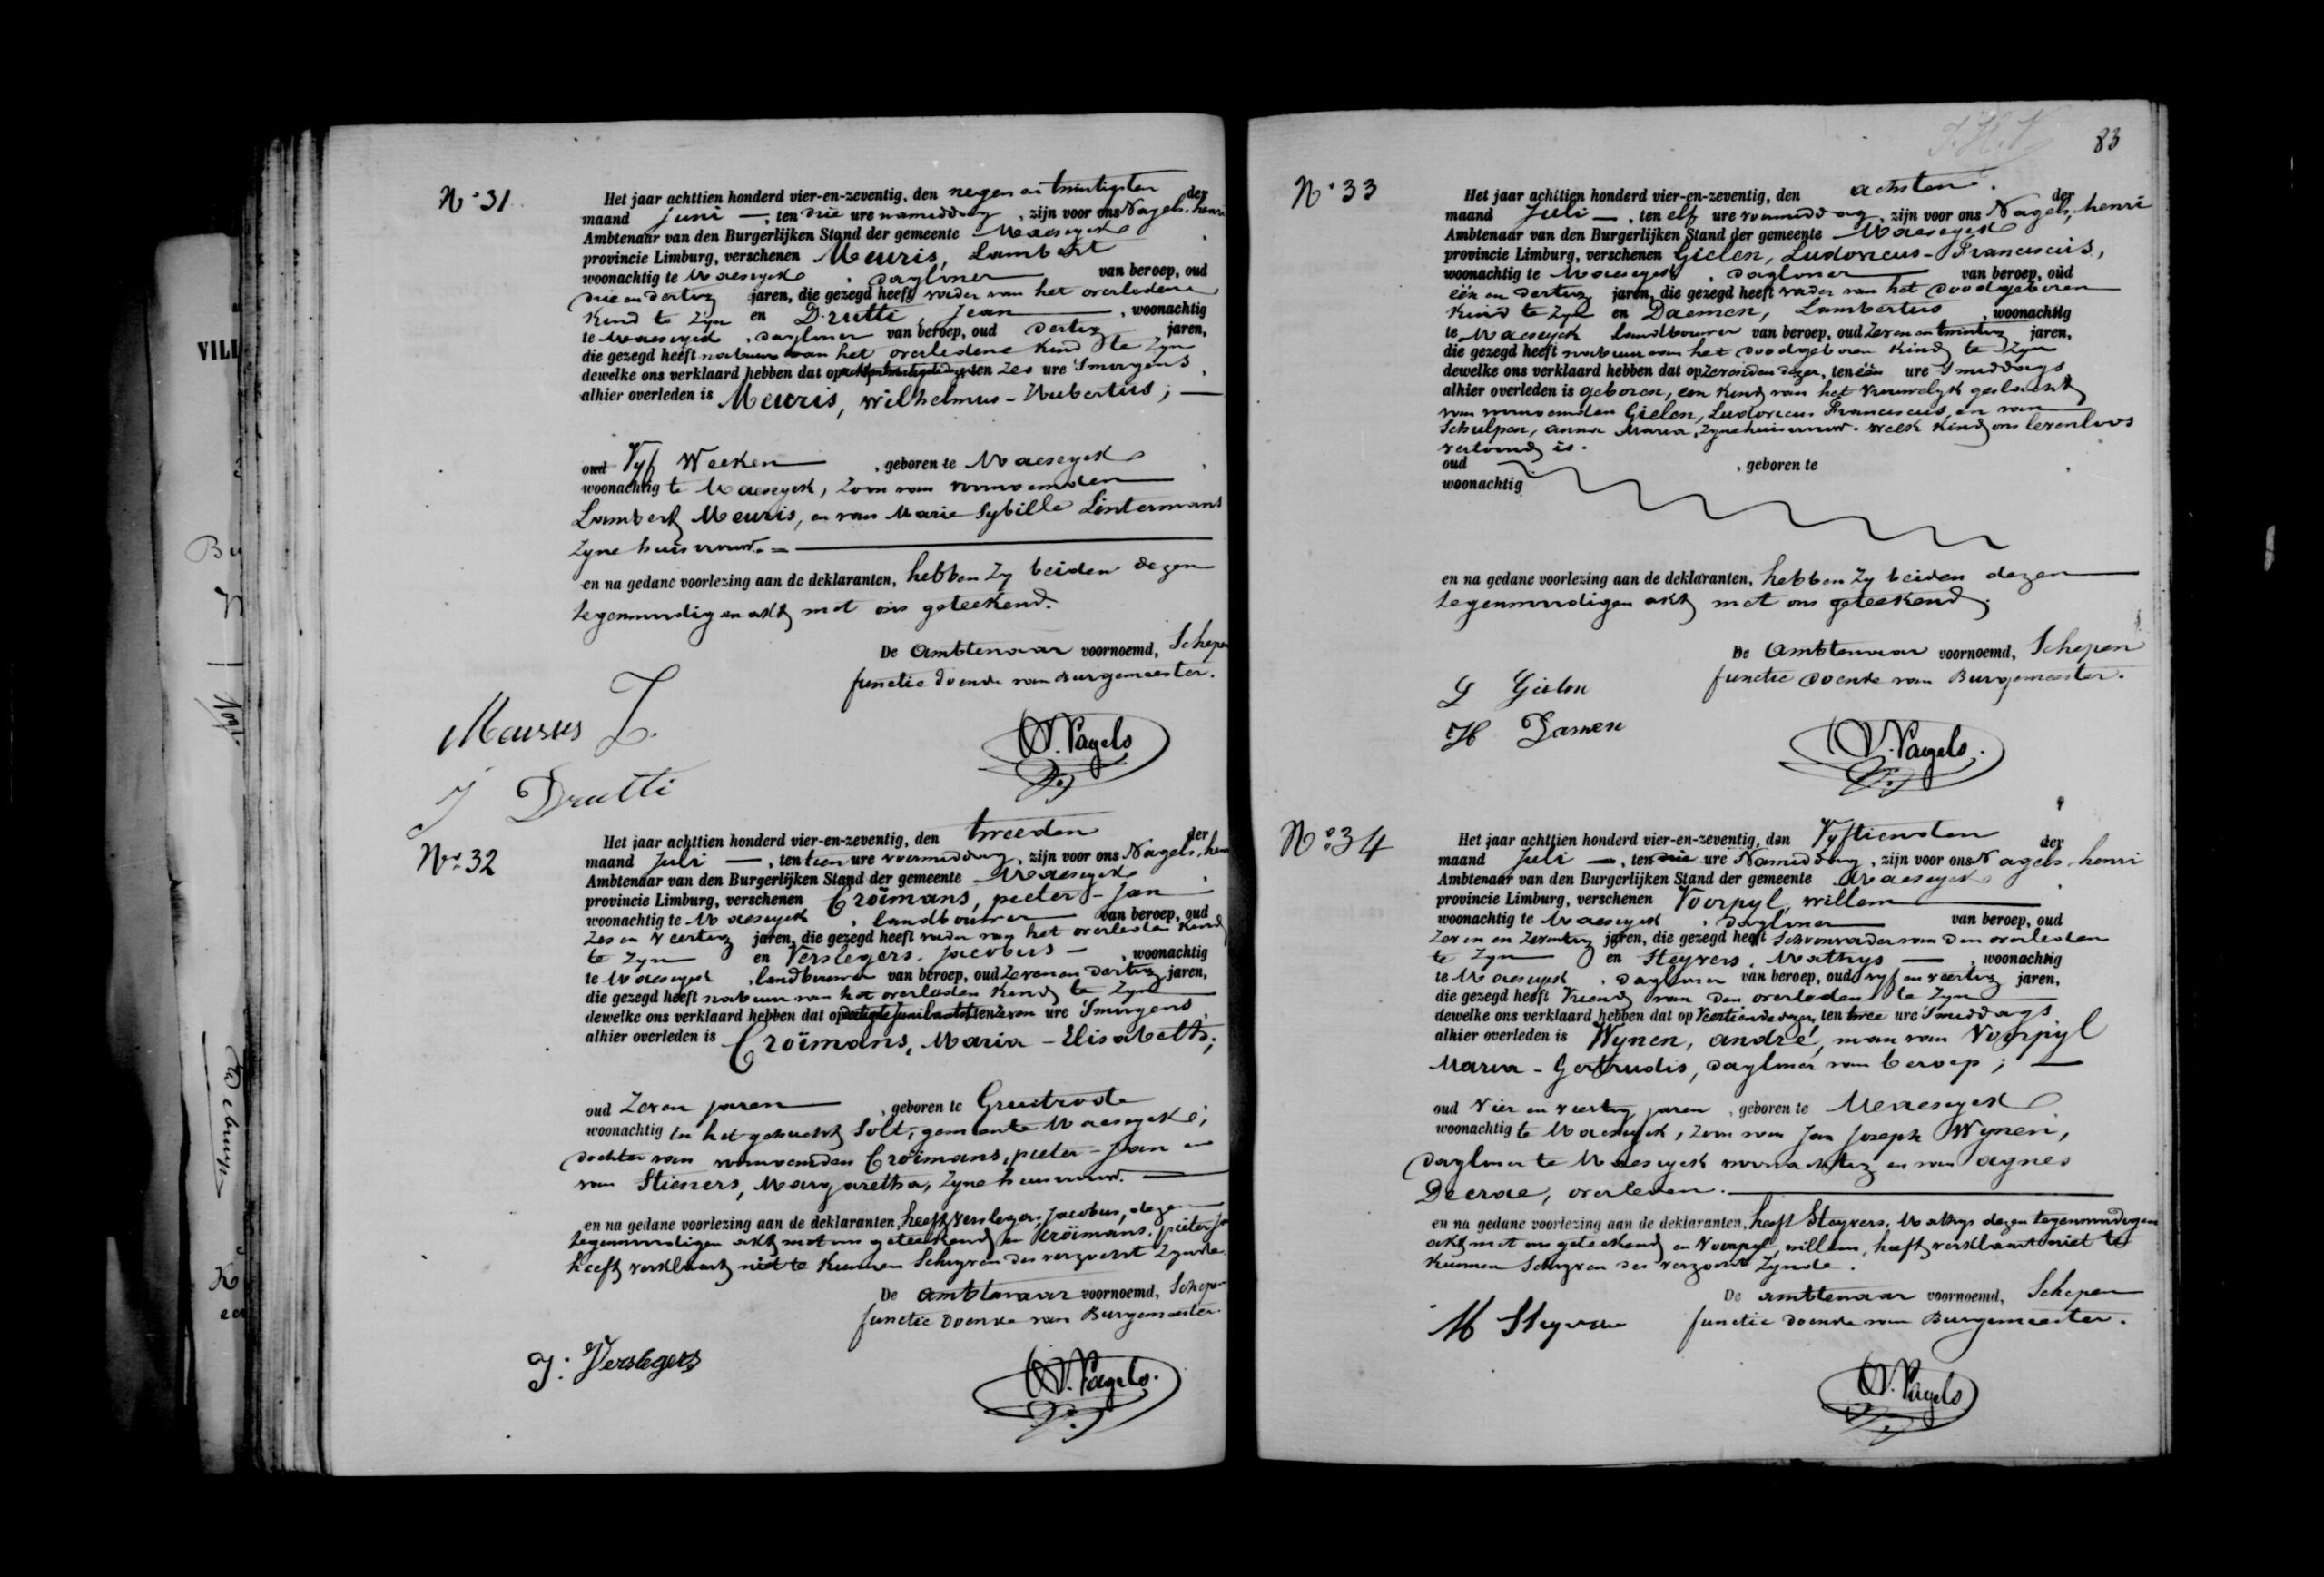 VILL
N° 31
Het jaar achttien honderd vier-en-zeventig, den negen en twintigsten der
maand juni —, ten drie ure namiddag, zijn voor ons Nagels, henri
Ambtenaar van den Burgerlijken Stand der gemeente Maeseyck
provincie Limburg, verschenen Meuris, Lambert
woonachtig te Maeseyck, dagloner van beroep, oud
drie en dertig jaren, die gezegd heeft vader van het overledene
Kind te Zyn en Drutti, Jean, woonachtig
te Maeseyck, dagloner van beroep, oud dertig jaren,
die gezegd heeft nabuur van het overledene Kind te Zyn
dewelke ons verklaard hebben dat op ten zes ure 'Smorgens,
alhier overleden is Meuris, Wilhelmus-Hubertus; —
oud Vyf Weeken, geboren te Maeseyck
woonachtig te Maeseyck, Zoon van voornoemden
Lambert Meuris, en van Marie Sybille Lintermans
Zyne huisvrouw. —
en na gedane voorlezing aan de deklaranten, hebben Zy beiden dezen
tegenwoordigen akt met ons geteekend.
De Ambtenaar voornoemd, Schepen
functie doende van Burgemeester.
Meuris L.
J Drutti
H. Nagels
N° 32
Het jaar achttien honderd vier-en-zeventig, den tweeden der
maand Juli —, ten tien ure voormiddag, zijn voor ons Nagels, henri
Ambtenaar van den Burgerlijken Stand der gemeente Maeseyck
provincie Limburg, verschenen Croïmans, pieter-Jan
woonachtig te Maeseyck, landbouwer van beroep, oud
Zes en Veertig jaren, die gezegd heeft vader van het overleden Kind
te Zyn en Verslegers, Jacobus —, woonachtig
te Maeseyck, landbouwer van beroep, oud Zeven en dertig jaren,
die gezegd heeft nabuur van het overleden Kind te Zyn
dewelke ons verklaard hebben dat op dertigste Juni laatst ten zeven ure 'Smorgens,
alhier overleden is Croïmans, Maria-Elisabeth;
oud Zeven jaren, geboren te Gruitrode
woonachtig in het gehucht Solt, gemeente Maeseyck;
dochter van voornoemden Croïmans, pieter-Jan en
van Stieners, Margaretha, Zyne huisvrouw. —
en na gedane voorlezing aan de deklaranten, heeft Verslegers, Jacobus, dezen
tegenwoordigen akt met ons geteekend en Croïmans, pieter Jan
heeft verklaart niet te Kunnen Schryven des verzocht Zynde.
De ambtenaar voornoemd, Schepen
functie doende van Burgemeester.
J. Verslegers
H. Nagels.
83
N° 33
Het jaar achttien honderd vier-en-zeventig, den achsten. der
maand Juli —, ten elf ure voormiddag, zijn voor ons Nagels, henri
Ambtenaar van den Burgerlijken Stand der gemeente Maeseyck
provincie Limburg, verschenen Gielen, Ludovicus-Franciscus,
woonachtig te Maeseyck, dagloner van beroep, oud
één en dertig jaren, die gezegd heeft vader van het doodgeboren
Kind te Zyn en Daemen, Lambertus, woonachtig
te Maeseyck landbouwer van beroep, oud Zeven en twintig jaren,
die gezegd heeft nabuur van het doodgeboren Kind te Zyn
dewelke ons verklaard hebben dat op Zevenden dezer, ten één ure 'Smiddags,
alhier overleden is geboren, een Kind van het Vrouwelyk geslacht
van voornoemden Gielen, Ludovicus Franciscus, en van
Schulpen, anna Maria, Zyne huisvrouw. welk Kind ons levenloos
vertoond is.
oud, geboren te
woonachtig
en na gedane voorlezing aan de deklaranten, hebben Zy beiden dezen
tegenwoordigen akt met ons geteekend.
De Ambtenaar voornoemd, Schepen
functie doende van Burgemeester.
L Gielen
H Damen
H. Nagels.
N° 34
Het jaar achttien honderd vier-en-zeventig, den Vyftienden der
maand Juli —, ten drie ure Namiddag, zijn voor ons Nagels, henri
Ambtenaar van den Burgerlijken Stand der gemeente Maeseyck
provincie Limburg, verschenen Voorpyl, willem
woonachtig te Maeseyck, dagloner van beroep, oud
Zeven en Zeventig jaren, die gezegd heeft Schoonvader van den overleden
te Zyn en Steyvers, Mathys —, woonachtig
te Maeseyck, dagloner van beroep, oud vyf en veertig jaren,
die gezegd heeft Vriend van den overleden te Zyn
dewelke ons verklaard hebben dat op Veertienden dezer, ten twee ure 'Smiddags
alhier overleden is Wynen, andré, man van Voorpyl
Maria-Gertrudis, dagloner van beroep; —
oud Vier en veertig jaren, geboren te Maeseyck
woonachtig te Maeseyck, Zoon van Jan Joseph Wynen,
dagloner te Maeseyck woonachtig en van agnes
Decrae, overleden. —
en na gedane voorlezing aan de deklaranten, heeft Steyvers, Mathys dezen tegenwoordigen
akt met ons geteekend en Voorpyl, willem, heeft verklaart niet te
Kunnen Schryven des verzocht Zynde.
De ambtenaar voornoemd, Schepen
functie doende van Burgemeester.
M Steyvers
H. Nagels